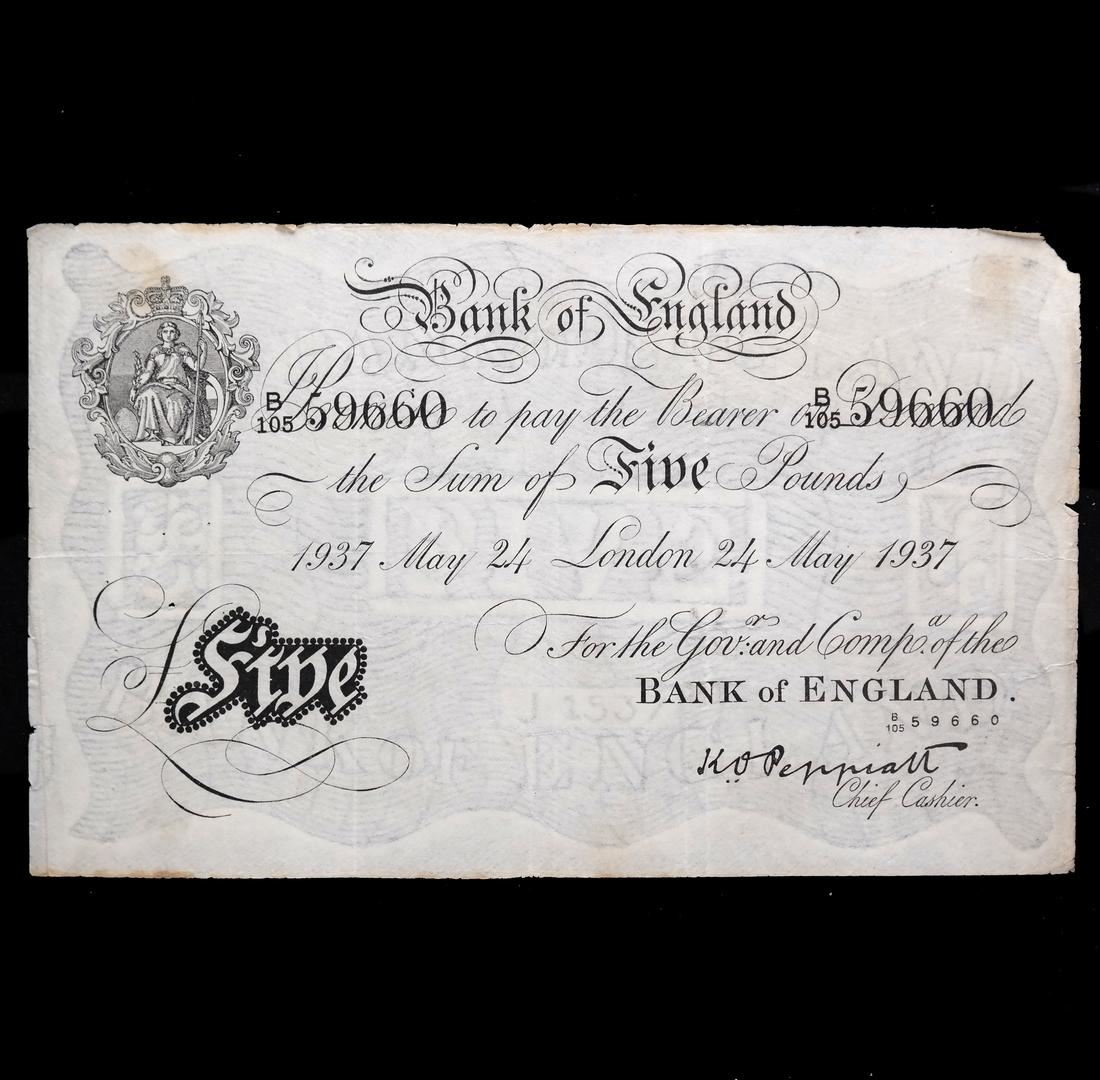 Bank of England
B/105 59660 I Promise to pay the Bearer on Demand B/105 59660
the Sum of Five Pounds
1937 May 24 London 24 May 1937
For the Govr: and Compa. of the
BANK of ENGLAND.
B/105 59660
£Five
K.O. Peppiatt
Chief Cashier.